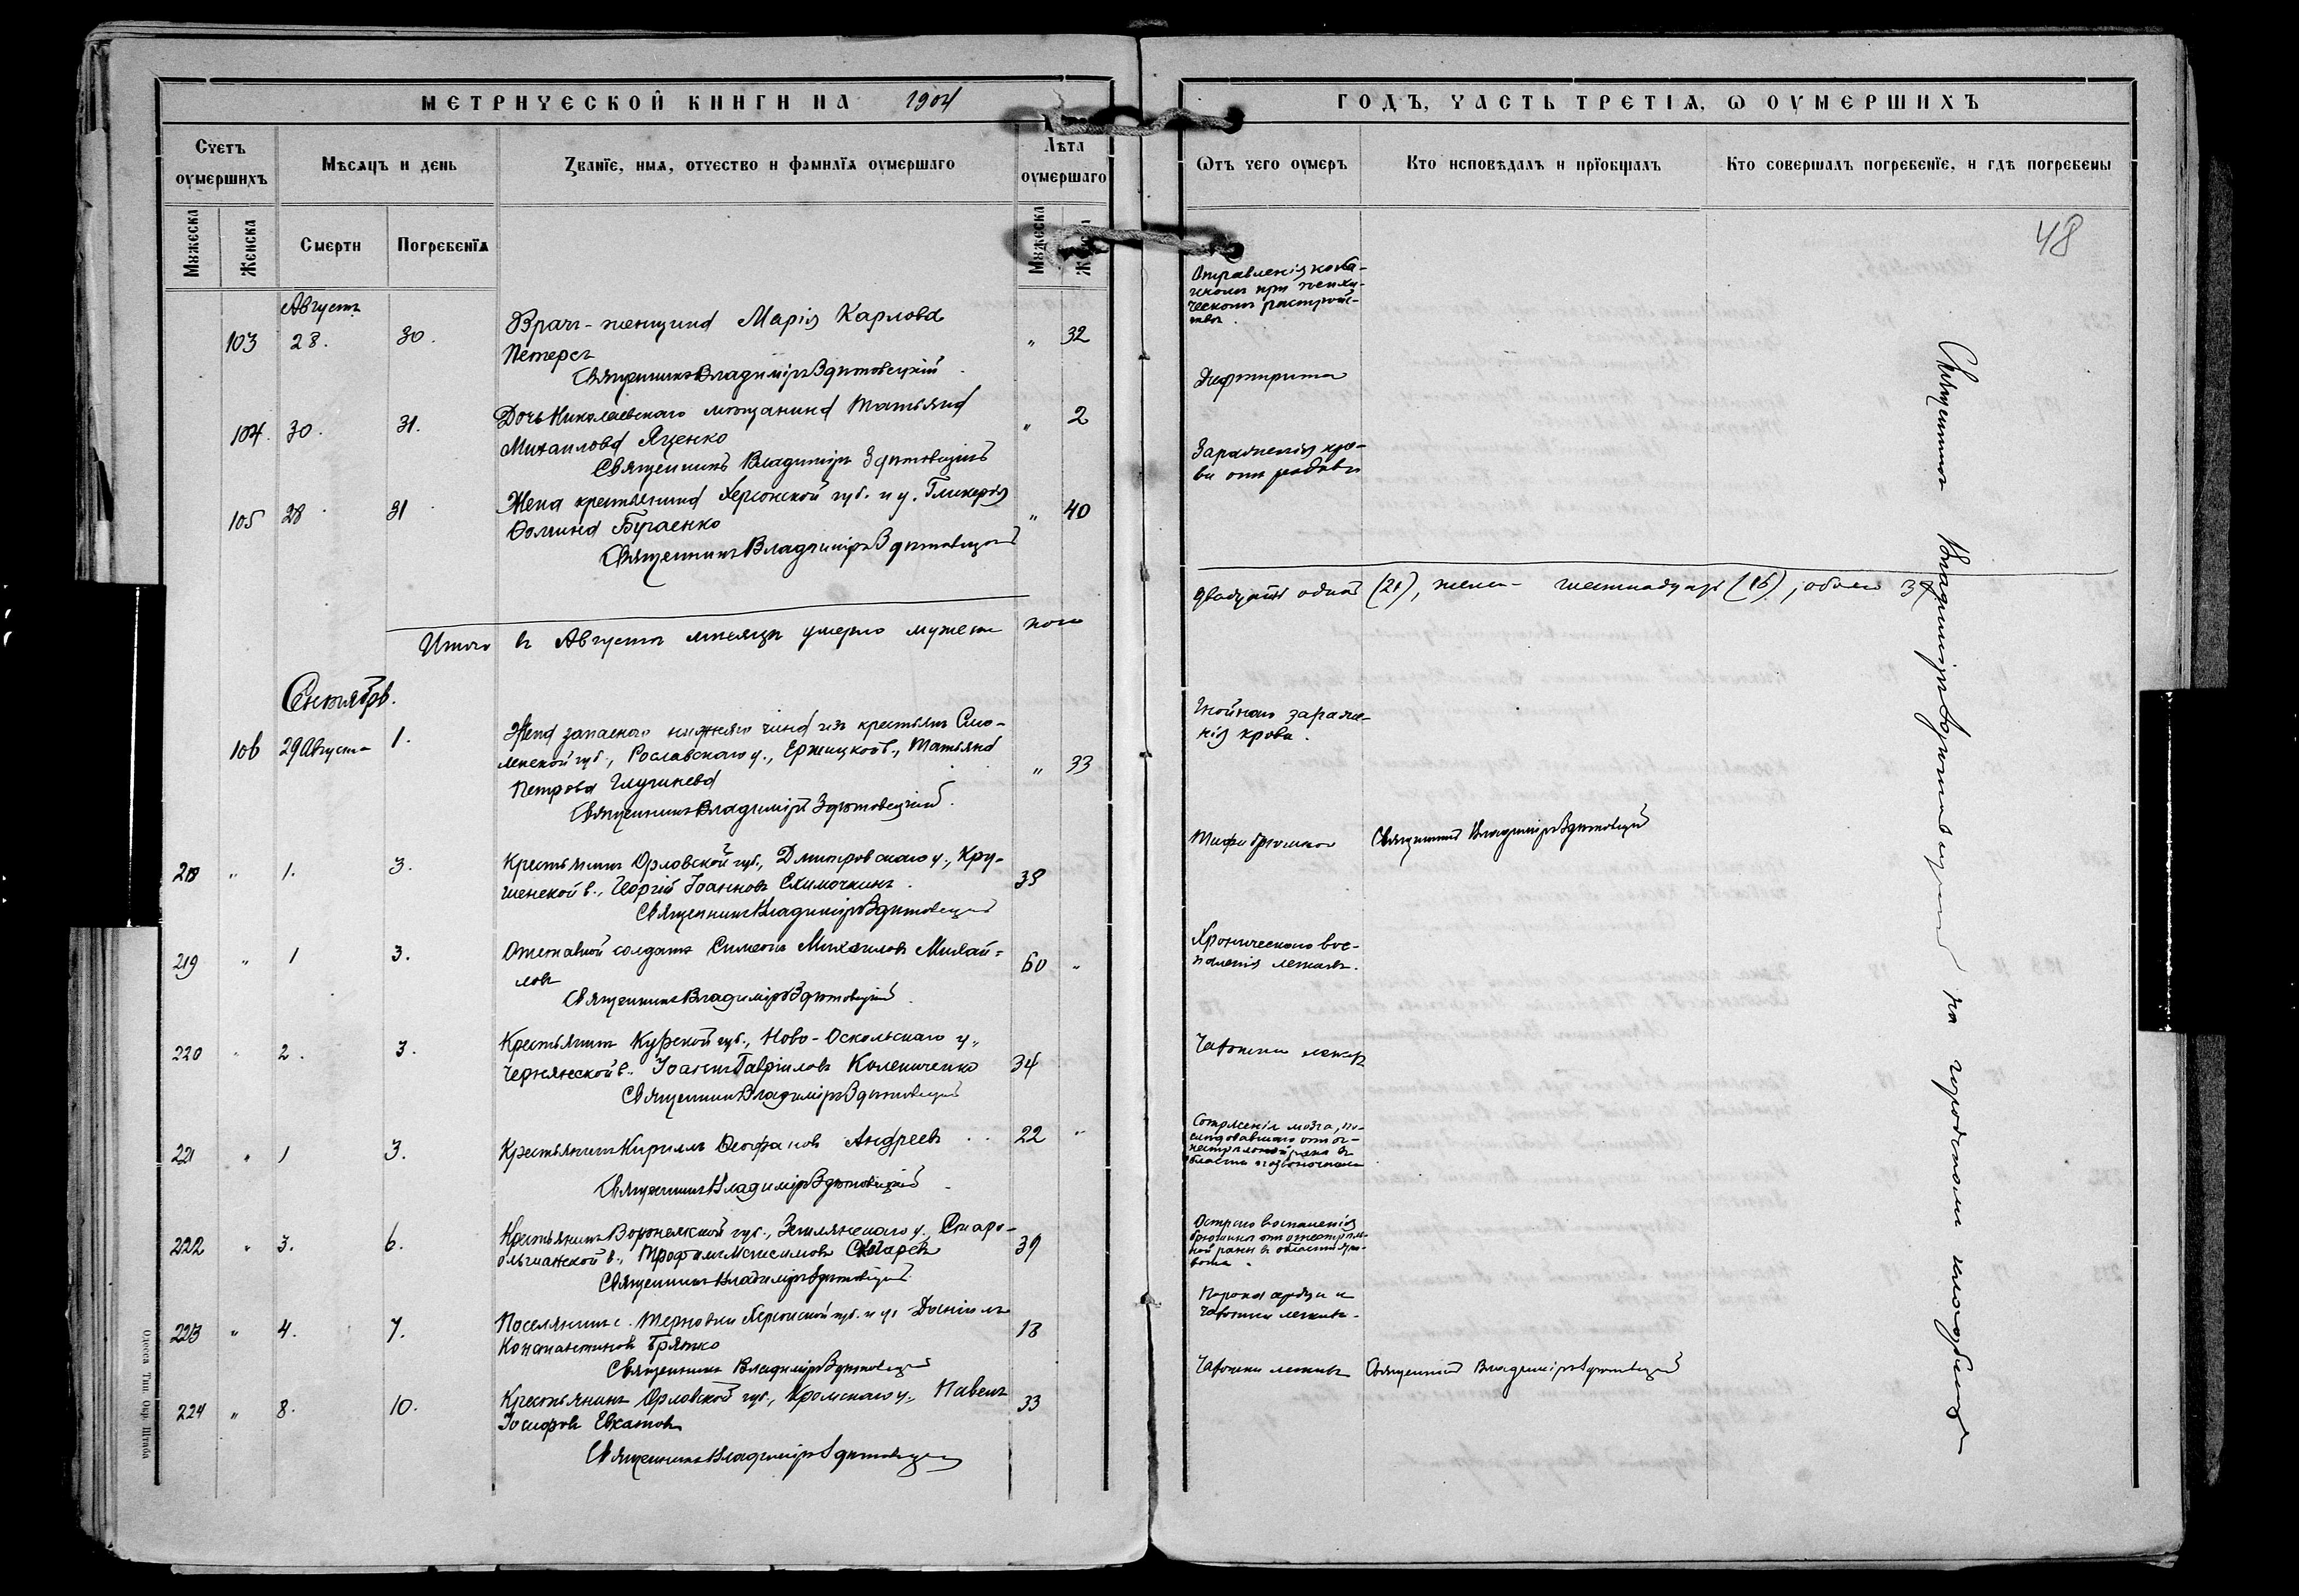 МЕТРИЧЕСКОЙ КНИГИ НА 1904
ГОДЪ, ЧАСТЬ ТРЕТІЯ, Ѡ ОУМЕРШИХЪ
Счетъ оумершихъ
Мѣсяцъ и день
Званїе, имя, отчество и фамилїя оумершаго
Лѣта оумершаго
Ѿтъ чего оумеръ
Кто исповѣдалъ и прїобщалъ
Кто совершалъ погребенїе, и гдѣ погребены
Мужеска
Женска
Смерти
Погребенїя
Мужеска
48
Августъ
103 28. 30. Врачъ-женщина Марія Карлова „ 32
Петерсъ
Священникъ Владиміръ Здѣтовецкій
Отравленія кока-
иномъ при психи-
ческомъ растрой-
ствѣ.
104. 30. 31. Дочь Николаевскаго мѣщанина Татьяна „ 2
Михаилова Яценко
Священникъ Владиміръ Здѣтовецкій
Дифтерита
105 28 31 Жена крестьянина Херсонской губ. и у. Гликерія „ 40
Ѳомина Бугаенко
Священникъ Владиміръ Здѣтовецкій
Зараженія кро-
ви отъ
Итого въ Августѣ мѣсяцѣ умерло мужеска пола
двадцать одинъ (21), женска шестнадцать (16), обоего 37
Сентябрь.
106 29 Августа 1. Жена запаснаго нижняго чина изъ крестьянъ Смо-
ленской губ., Рославскаго у., в., Татьяна „ 33
Петрова
Священникъ Владиміръ Здѣтовецкій.
Гнойнаго зараже-
нія крови.
218 „ 1. 3. Крестьянинъ Орловской губ., Дмитровскаго у., Кру-
шенской в., Георгій Іоанновъ 38
Священникъ Владиміръ Здѣтовецкій
Тифа брюшного Священникъ Владиміръ Здѣтовецкій
219 „ 1 3. Отставной солдатъ Симеонъ Михаиловъ Михай-
ловъ 60 „
Священникъ Владиміръ Здѣтовецкій
Хроническаго вос-
паленія легкихъ.
220 „ 2. 3. Крестьянинъ Курской губ., Ново-Оскольскаго у.,
Чернянской в. Іоаннъ Гавріиловъ Колениченко 34
Священникъ Владиміръ Здѣтовецкій
Чахотки легкихъ
221 „ 1 3. Крестьянинъ Кириллъ Ѳеофановъ Андреевъ 22 „
Священникъ Владиміръ Здѣтовецкій
Сотрясенія мозга, по-
слѣдовавшаго отъ ог-
нестрѣльной раны въ
области позвоночника
222 „ 3. 6. Крестьянинъ Воронежской губ., Землянскаго у., Старо-
ольшанской в., Трофимъ 39
Священникъ Владиміръ Здѣтовецкій
Остраго воспаленія
брюшины отъ огнестрѣль-
ной раны въ области жи-
вота.
223 „ 4. 7. Поселянинъ с. Терновки Херсонской губ. и у. Даніилъ
Константиновъ 18
Священникъ Владиміръ Здѣтовецкій
Порока сердца и
чахотки легкихъ.
224 „ 8. 10. Крестьянинъ Орловской губ., Кромскаго у., Павелъ 33
Іосифовъ Евкатовъ
Священникъ Владиміръ Здѣтовецкій
Чахотки легкихъ Священникъ Владиміръ Здѣтовецкій
Священникъ Владиміръ Здѣтовецкій на городскомъ кладбищѣ
Одесса Тип. Окр. Штаба